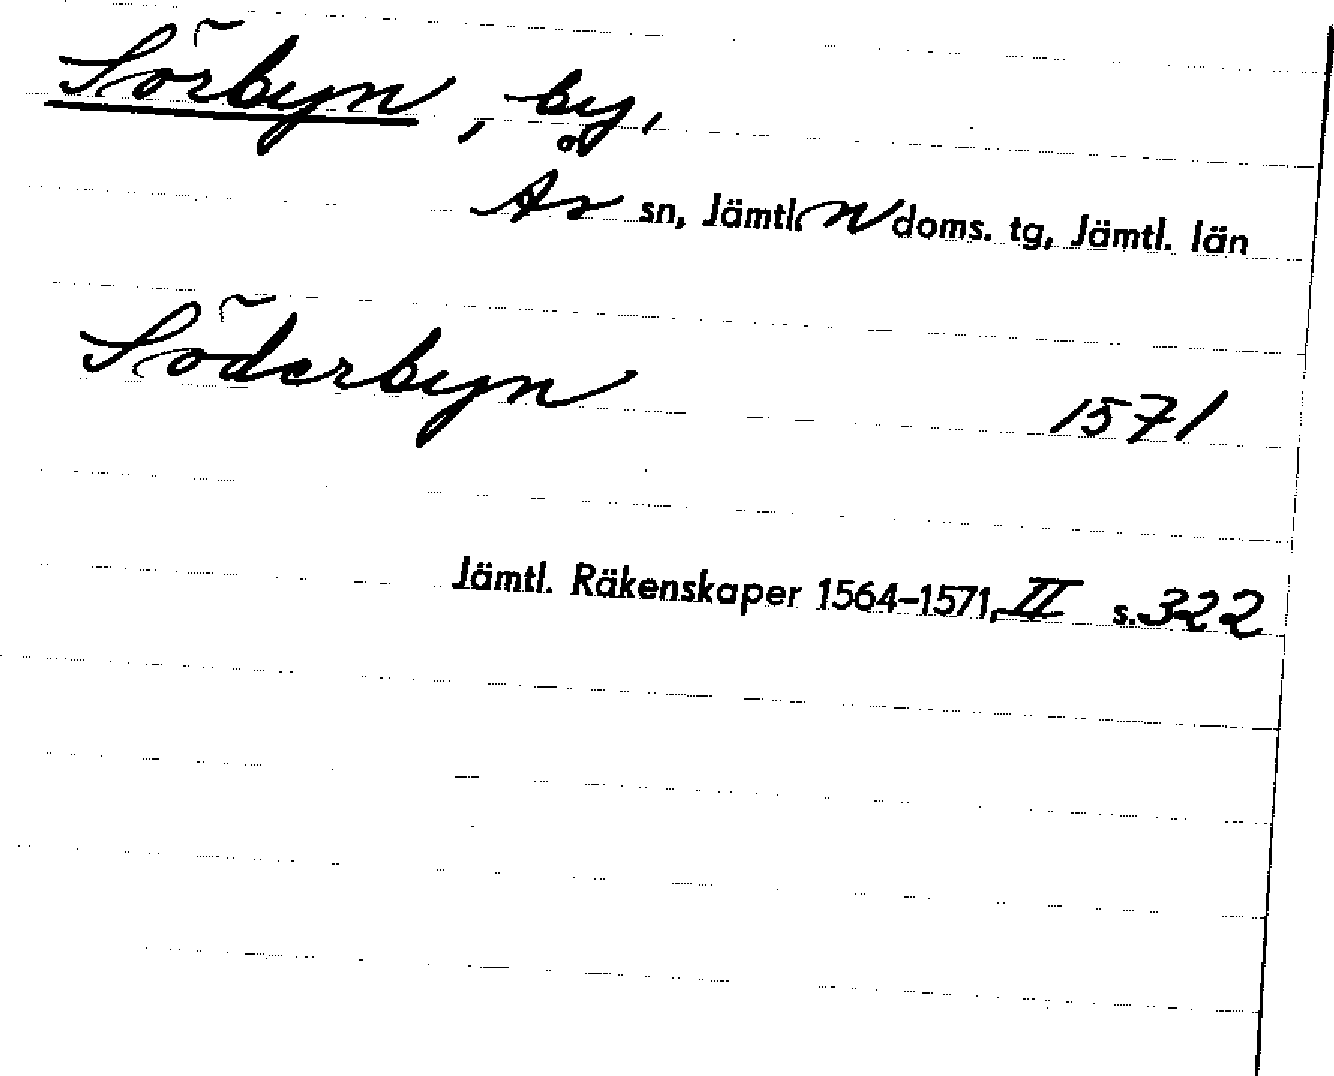 Sörbyn, by,
Ås sn, Jämtl. N doms. tg, Jämtl. län
Söderbyn 1571
Jämtl. Räkenskaper 1564–1571, II s. 322